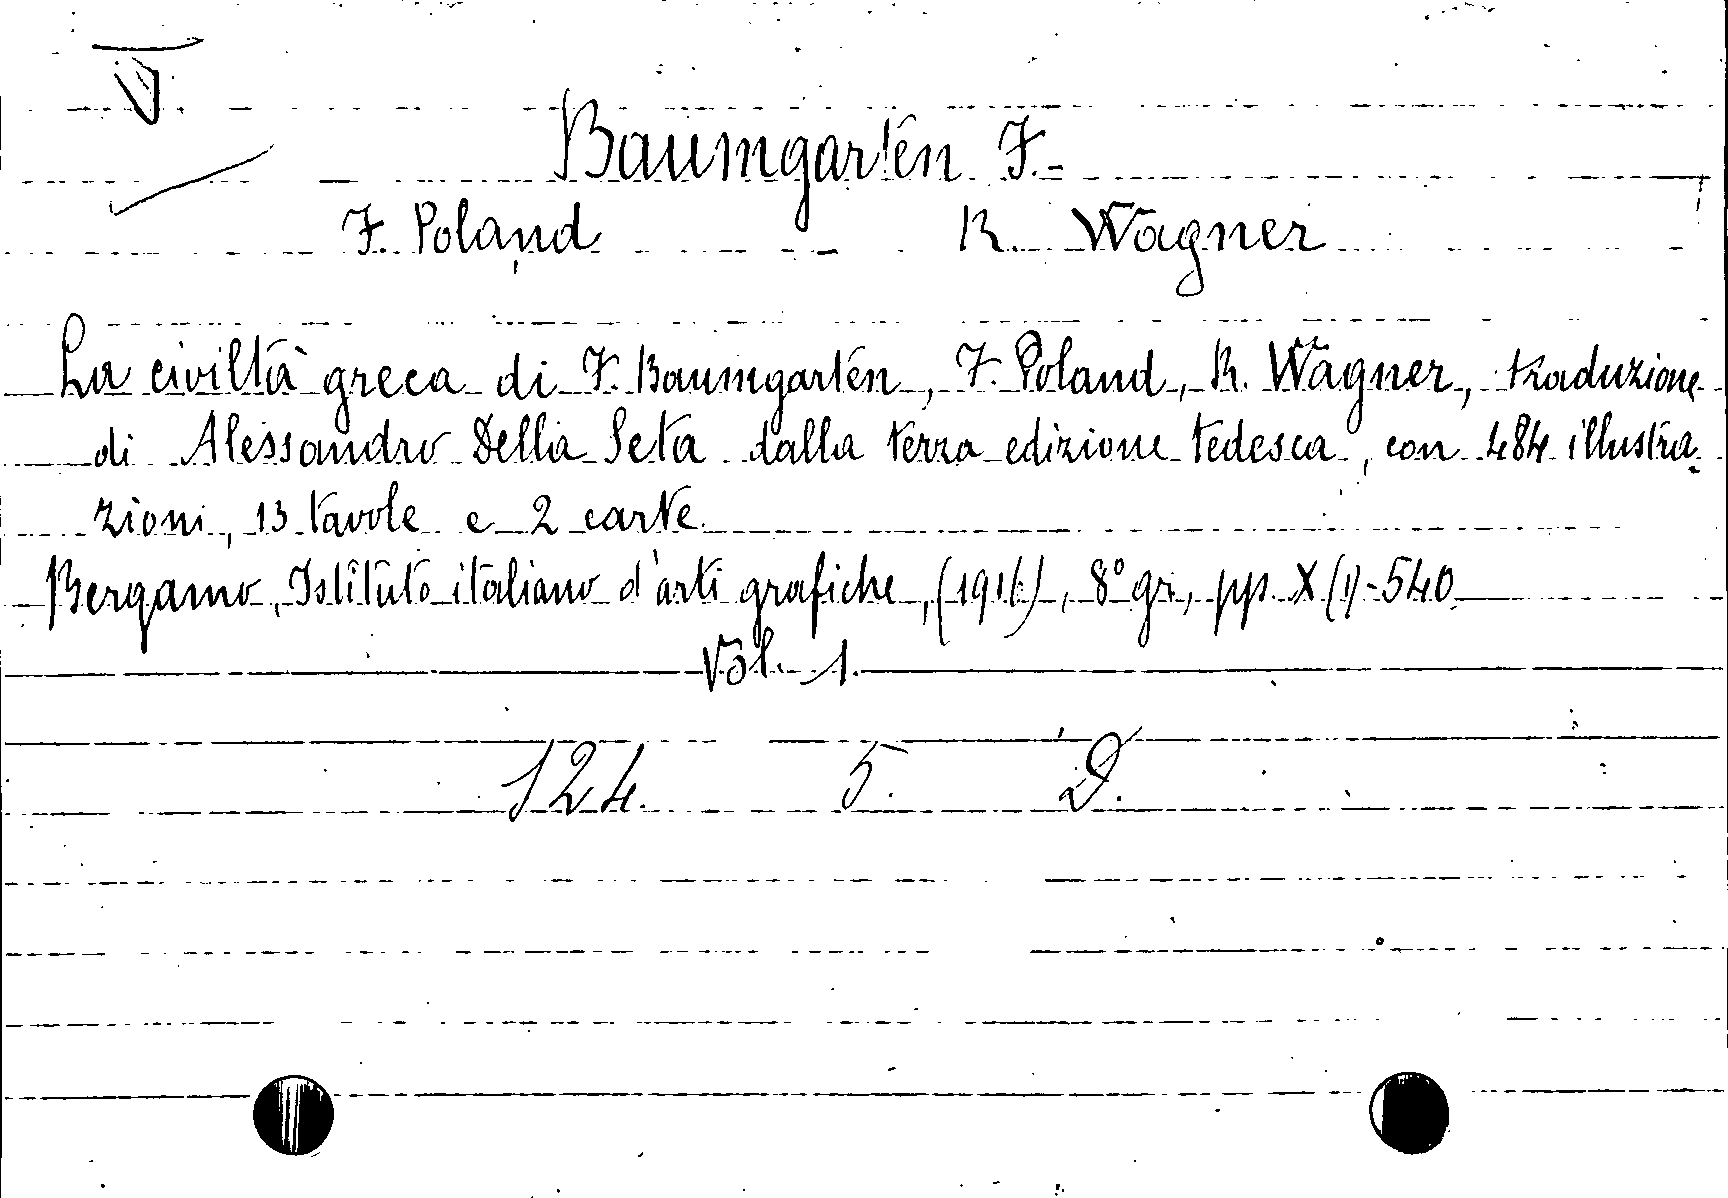 V
Baumgarten F.-
F. Poland R. Wagner
La civiltà greca di F. Baumgarten, F. Poland, R. Wagner, traduzione
di Alessandro Della Seta dalla terza edizione tedesca, con 484 illustra-
zioni, 13 tavole e 2 carte.
Bergamo, Istituto italiano d'arti grafiche, 8° gr., pp. X (1)-540
Vol. 1.
124. 5. D.